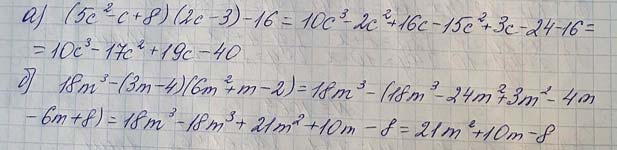 а) (5c²-c+8)(2c-3)-16=10c³-2c²+16c-15c²+3c-24-16=
=10c³-17c²+19c-40
б) 18m³-(3m-4)(6m²+m-2)=18m³-(18m³-24m²+3m²-4m
-6m+8)=18m³-18m³+21m²+10m-8=21m²+10m-8